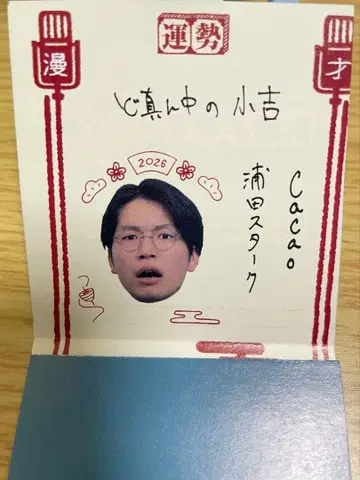 運勢
漫
才
ど真ん中の小吉
2026
Cacao
浦田スターク